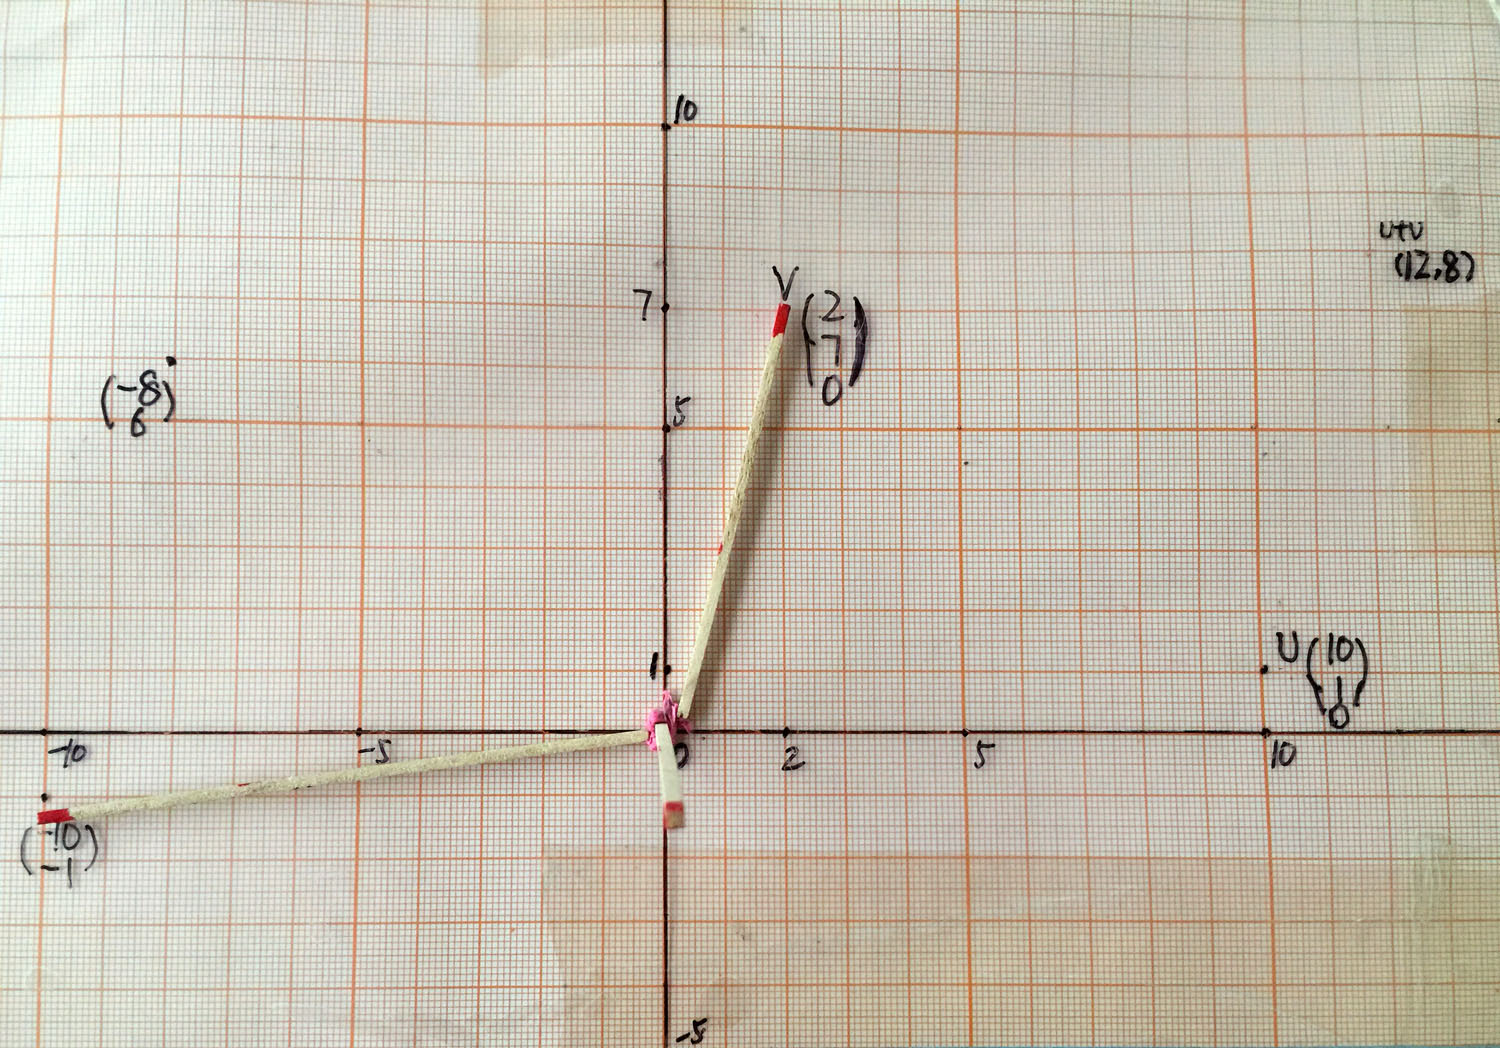 10
U+V
(12,8)
V
7
(2
7
0)
(-8
6)
5
1
U (10
1
0)
-10
-5
0
2
5
10
(-10
-1)
-5